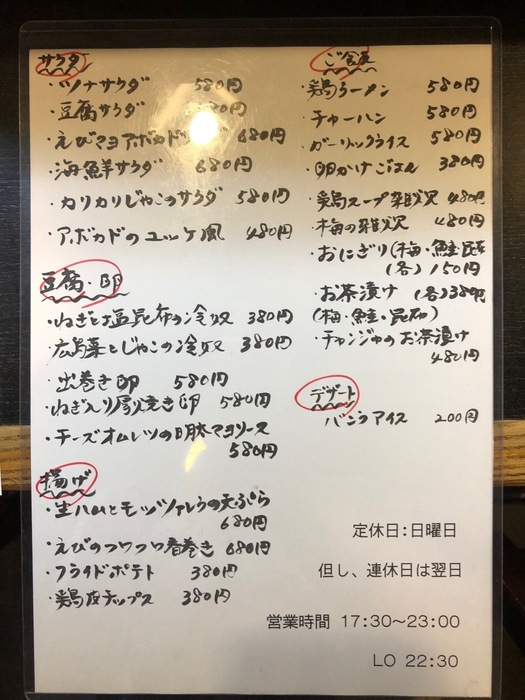 サラダ
・ツナサラダ 580円
・豆腐サラダ 580円
・えびマヨアボカドサラダ 680円
・海鮮サラダ 680円
・カリカリじゃこのサラダ 580円
・アボカドのユッケ風 480円
豆腐・卵
・ねぎと塩昆布の冷奴 380円
・広島菜とじゃこの冷奴 380円
・出巻き卵 580円
・ねぎ入り厚焼き卵 580円
・チーズオムレツの明太マヨソース
580円
揚げ
・生ハムとモッツァレラの天ぷら
680円
・えびのプリプリ春巻き 680円
・フライドポテト 380円
・鶏皮チップス 380円
ご食事
・鶏ラーメン 580円
・チャーハン 580円
・ガーリックライス 580円
・卵かけごはん 380円
・鶏スープ雑炊 480円
・梅の雑炊 480円
・おにぎり(梅・鮭・昆布)
(各) 150円
・お茶漬け (各)380円
(梅・鮭・昆布)
・チャンジャのお茶漬け
480円
デザート
・バニラアイス 200円
定休日:日曜日
但し、連休日は翌日
営業時間 17:30〜23:00
LO 22:30